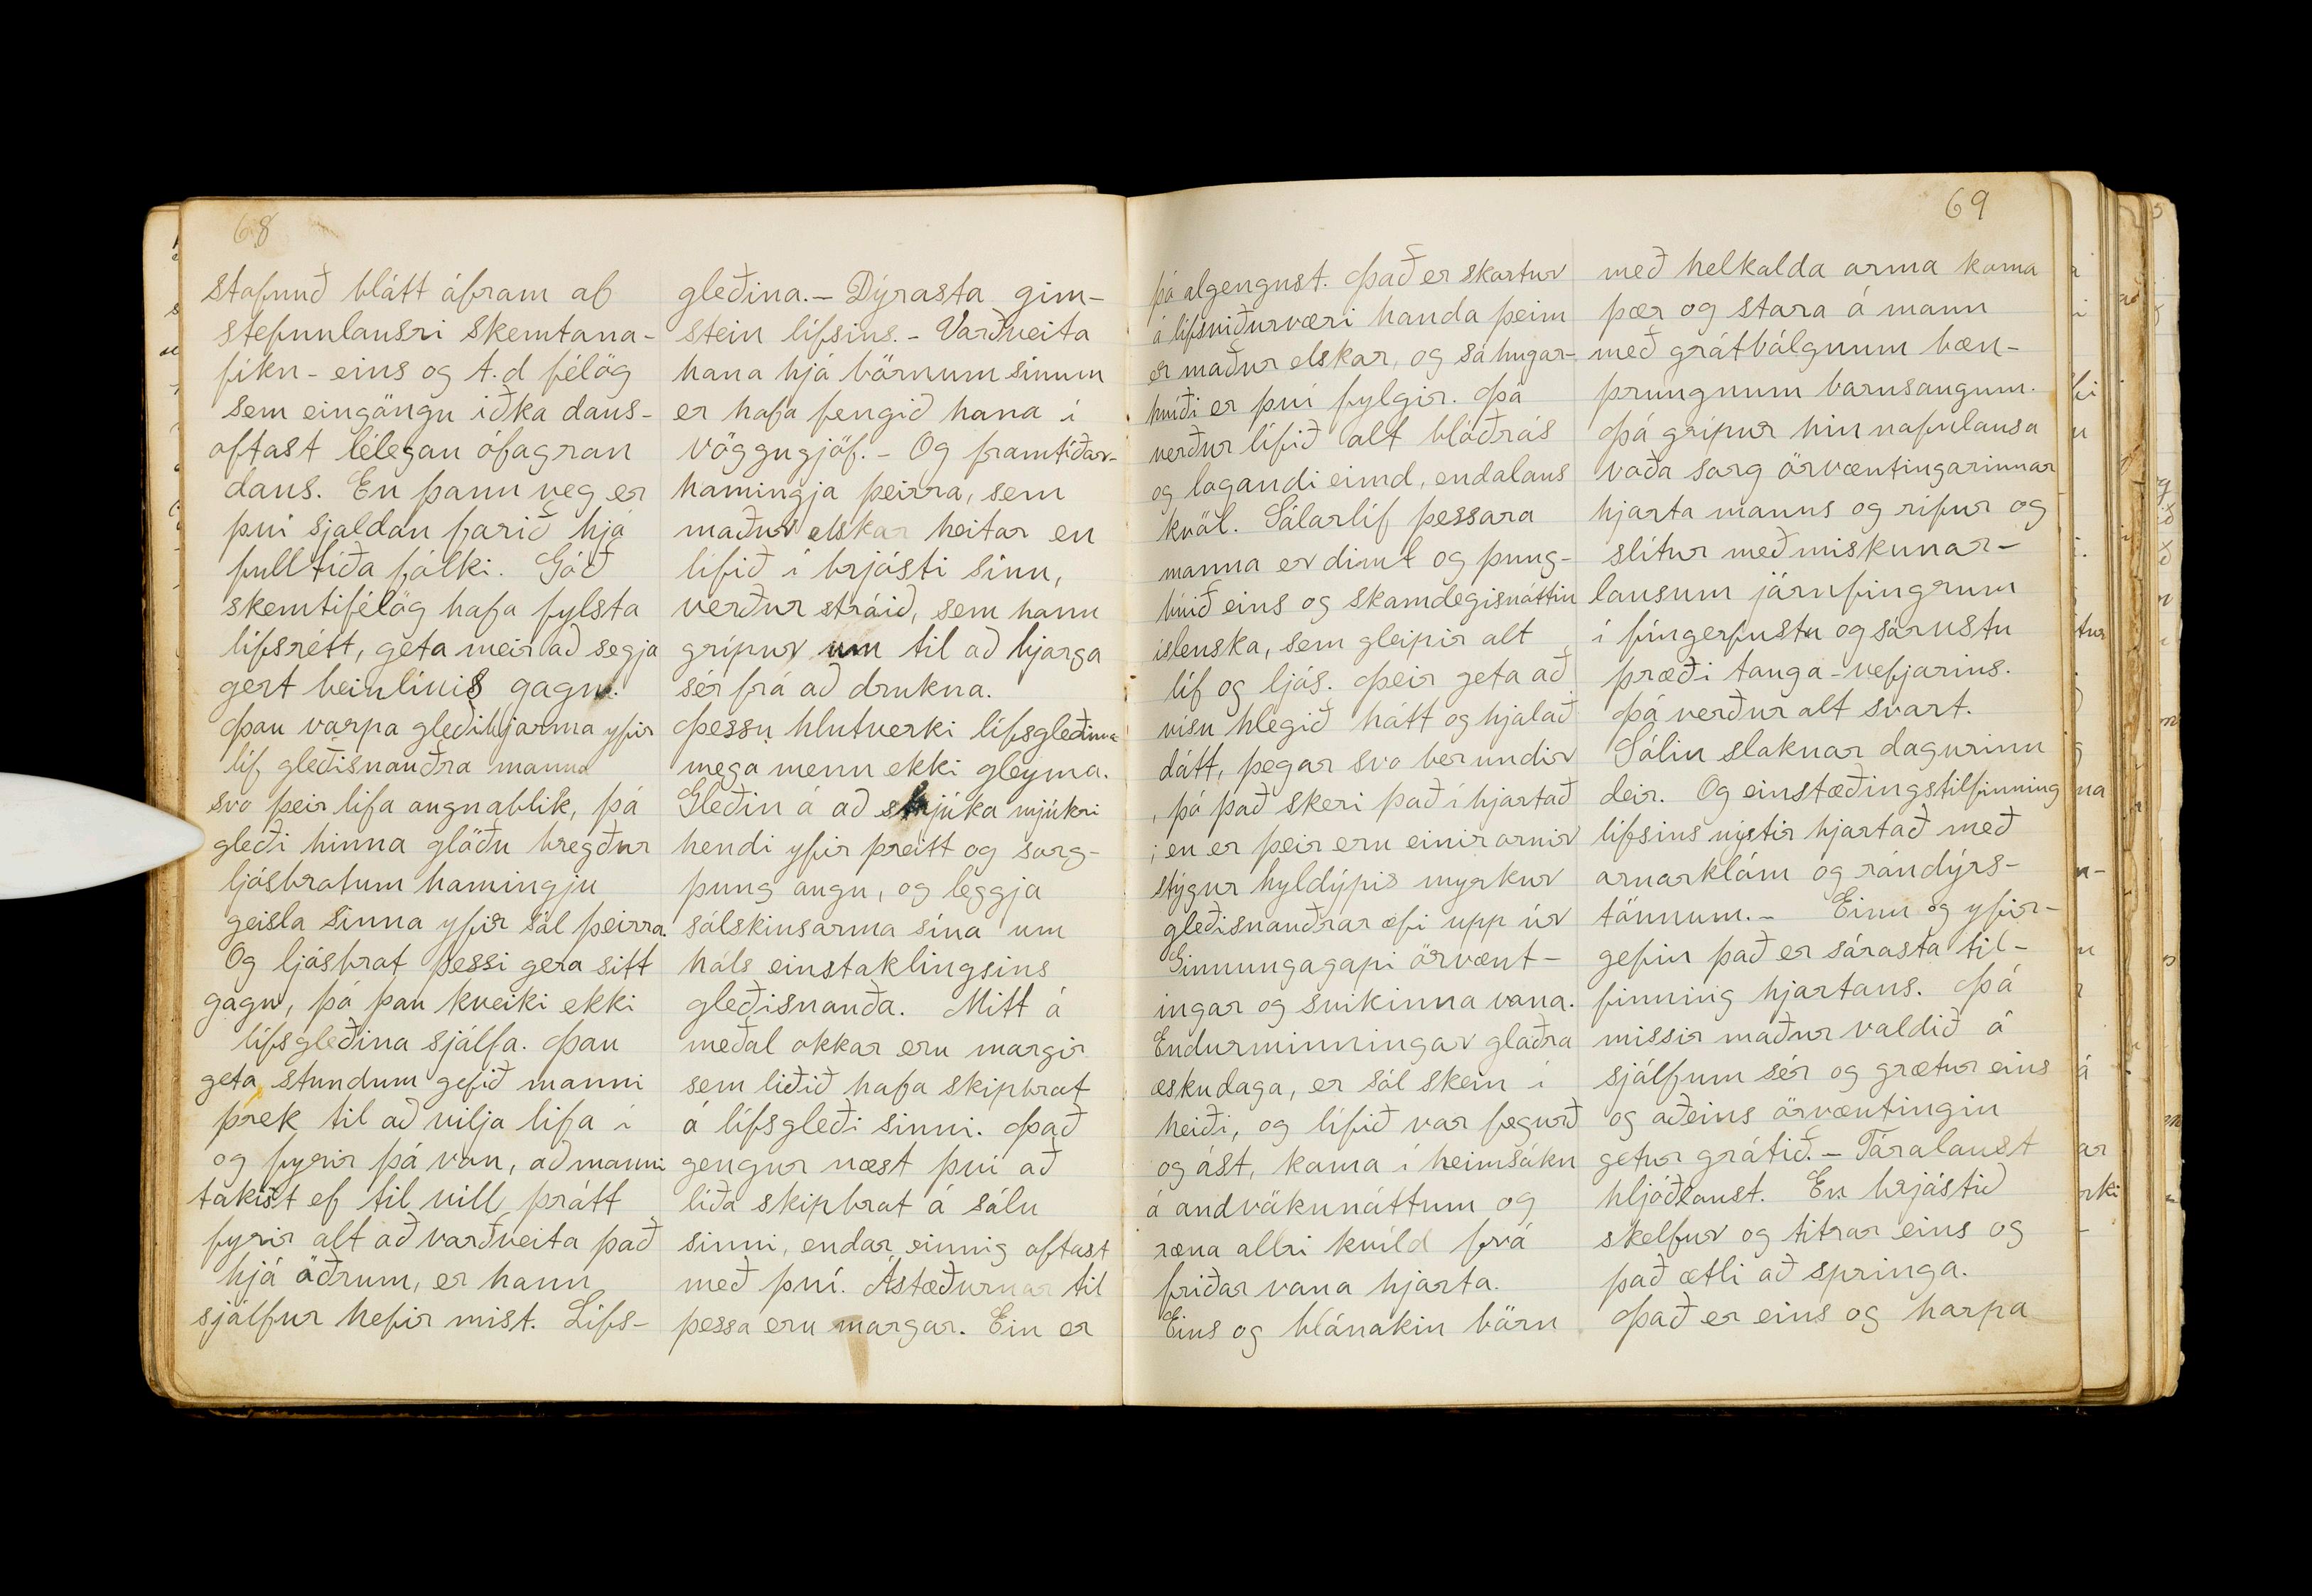 68
stofnuð blátt áfram af
stefnulausri skemtana-
fíkn - eins og t.d félög
sem eingöngu iðka dans-
oftast lélegan ófagran
dans. En þann veg er
því sjaldan farið hjá
fulltíða fólki. Góð
skemtifélög hafa fylsta
lífsrétt, geta meir að segja
gert beinlínis gagn.
Þau varpa gleðibjarma yfir
líf gleðisnauðra manna
svo þeir lifa augnablik, þá
gleði hinna glöðu bregður
ljósbrotum hamingju
geisla sinna yfir sál þeirra.
Og ljósbrot þessi gera sitt
gagn, þó þau kveiki ekki
lífsgleðina sjálfa. Þau
geta stundum gefið manni
þrek til að vilja lifa í
og fyrir þá von, að manni
takist ef til vill, þrátt
fyrir alt að varðveita það
hjá öðrum, er hann
sjálfur hefir mist. Lífs-
gleðina. - Dýrasta gim-
stein lífsins. - Varðveita
hana hjá börnum sínum
er hafa fengið hana í
vöggugjöf. - Og framtíðar-
hamingja þeirra, sem
maður elskar heitar en
lífið í brjósti sínu,
verður stráið, sem hann
grípur um til að bjarga
sér frá að drukna.
Þessu hlutverki lífsgleðinnar
mega menn ekki gleyma.
Gleðin á að strjúka mjúkri
hendi yfir þreitt og sorg-
þung augu, og leggja
sólskinsarma sína um
háls einstaklingsins
gleðisnauða. Mitt á
meðal okkar eru margir
sem liðið hafa skipbrot
á lífsgleði sinni. Það
gengur næst því að
líða skipbrot á sálu
sinni, endar einnig oftast
með því. Ástæðurnar til
þessa eru margar. Ein er
69
þó algengust. Það er skortur
á lífsviðurværi handa þeim
er maður elskar, og sá hugar-
kvíði er því fylgir. Þá
verður lífið alt blóðrás
og logandi eimd, endalaus
kvöl. Sálarlíf þessara
manna er dimt og þung-
búið eins og skamdegisnáttin
íslenska, sem gleipir alt
líf og ljós. Þeir geta að
vísu hlegið hátt og hjalað
dátt, þegar svo ber undir
, þó það skeri það í hjartað
; en er þeir eru einir ornir
stýgur hyldýpis myrkur
gleðisnauðrar æfi upp úr
Ginnungagapi örvænt-
ingar og svikinna vona.
Endurminningar glaðra
æskudaga, er sól skein í
heiði, og lífið var fegurð
og ást, koma í heimsókn
á andvökunáttum og
ræna allri kvíld frá
friðar vana hjarta.
Eins og blánakin börn
með helkalda arma koma
þær og stara á mann
með grátbólgnum bæn-
þrungnum barnsaugum.
Þá grípur hin nafnlausa
voða sorg örvæntingarinnar
hjarta manns og rífur og
slítur með miskunar-
lausum járnfingrum
í fíngerfustu og sárustu
þræði tauga-vefjarins.
Þá verður alt svart.
Sólin sloknar dagurinn
deir. Og einstæðingstilfinning
lífsins nístir hjartað með
arnarklóm og rándýrs-
tönnum. - Einn og yfir-
gefin það er sárasta til-
finning hjartans. Þá
missir maður valdið á
sjálfum sér og grætur eins
og aðeins örvæntingin
getur grátið. - Táralaust
hljóðlaust. En brjóstið
skelfur og titrar eins og
það ætli að springa.
Það er eins og harpa